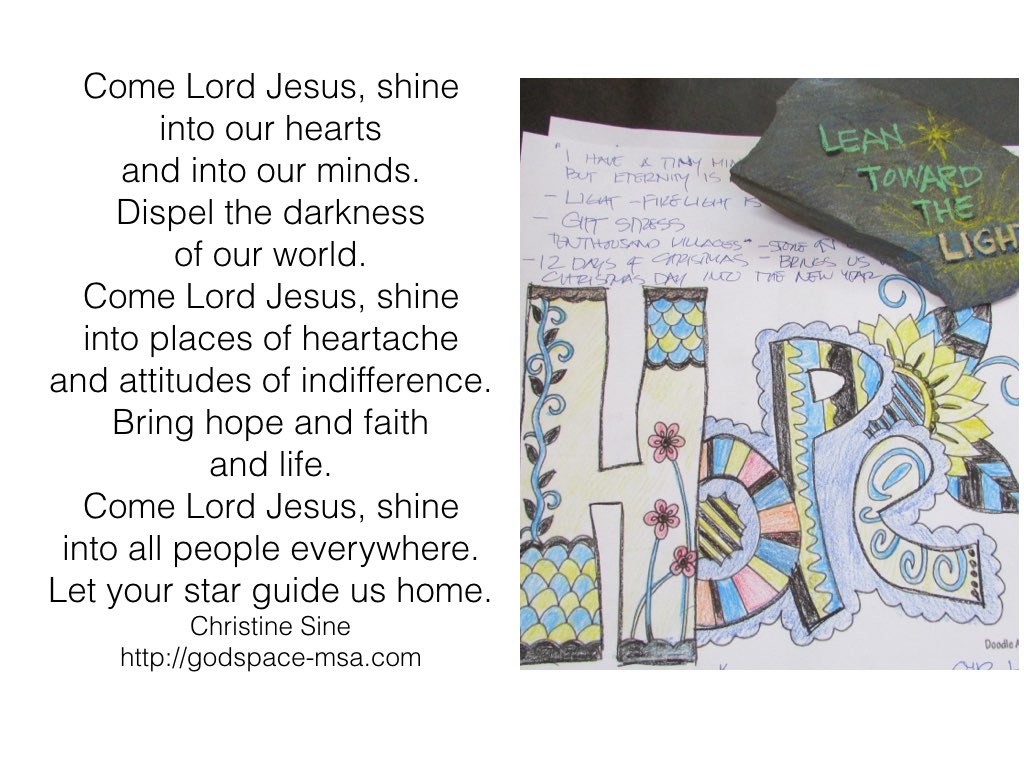 Come Lord Jesus, shine
into our hearts
and into our minds.
Dispel the darkness
of our world.
Come Lord Jesus, shine
into places of heartache
and attitudes of indifference.
Bring hope and faith
and life.
Come Lord Jesus, shine
into all people everywhere.
Let your star guide us home.
Christine Sine
http://godspace-msa.com
"I HAVE A TINY
BUT ETERNITY IS
- LIGHT - FIRELIGHT IS
- GIFT STRESS
TENTHOUSAND VILLAGES" -
- 12 DAYS of CHRISTMAS - BRINGS US
CHRISTMAS DAY INTO THE NEW YEAR
LEAN
TOWARD
THE
LIGH
HOPe
Doodle